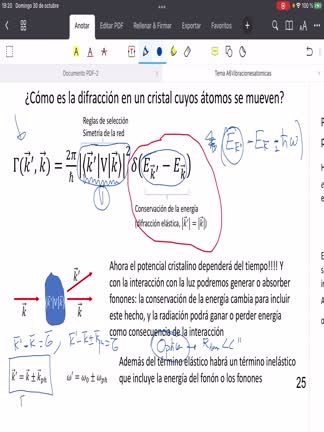 19:20 Domingo 30 de octubre
100 %
Anotar Editar PDF Rellenar & Firmar Exportar Favoritos
Documento PDF-2
Tema A6Vibracionesatomicas
¿Cómo es la difracción en un cristal cuyos átomos se mueven?
Reglas de selección
Simetría de la red
(E_k' − E_k ± ħω)
Γ(k⃗', k⃗) = 2π/ħ |⟨k⃗'|V|k⃗⟩|² δ(E_k⃗' − E_k⃗)
Conservación de la energía
(difracción elástica, |k⃗'| = |k⃗|)
Ahora el potencial cristalino dependerá del tiempo!!!! Y
con la interacción con la luz podremos generar o absorber
fonones: la conservación de la energía cambia para incluir
este hecho, y la radiación podrá ganar o perder energía
como consecuencia de la interacción
k⃗'
k⃗
⟨k'|V|k⟩
k⃗
k⃗' − k⃗ = G⃗ , k⃗' − k⃗ ± k⃗_ph = G⃗
k⃗' = k⃗ ± k⃗_ph ω' = ω₀ ± ω_ph
Además del término elástico habrá un término inelástico
que incluye la energía del fonón o los fonones
25